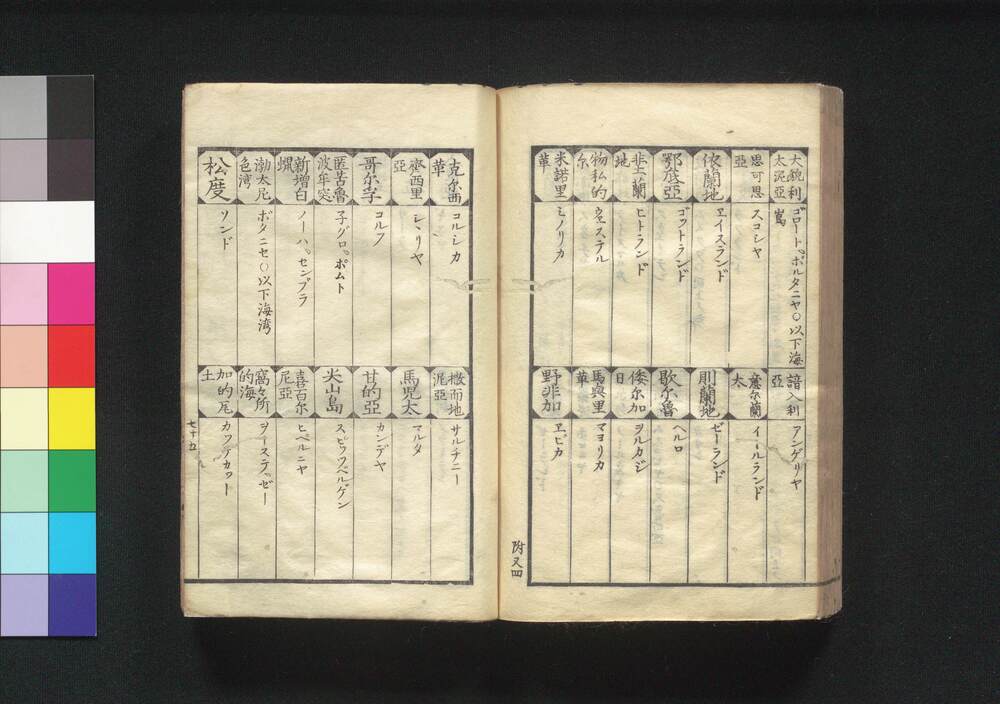 大鋭利太泥亞 ゴロート。ボルタニヤ〇以下海嶌
思可思亞 スコシヤ
依蘭地 ヱイスランド
鄂底亞 ゴットランド
蘭地 ヒトランド
物私的尓 ウエステル
米諾里華 ミノリカ
諳入利亞 アンゲリヤ
意尓蘭太 イヽルランド
則蘭地 ゼーランド
歇尓魯 ヘルロ
倭尓加日 ヲルカジ
馬與里華 マヨリカ
野非加 ヱビカ
附又四
克尓西華 コルシカ
齊西里亞 シヽリヤ
哥尓孚 コルフ
匿苦魯波牟突 子グロ。ポムト
新増白蝋 ノーハ。センブラ
渤太尼色湾 ボタニセ〇以下海湾
松度 ソンド
撒而地泥亞 サルヂニー
馬児太 マルタ
甘的亞 カンデヤ
尖山島 スピッツベルゲン
喜百尓尼亞 ヒベルニヤ
窩々所的海 ヲーステ。ゼー
加的瓦土 カッテカットー
七十五